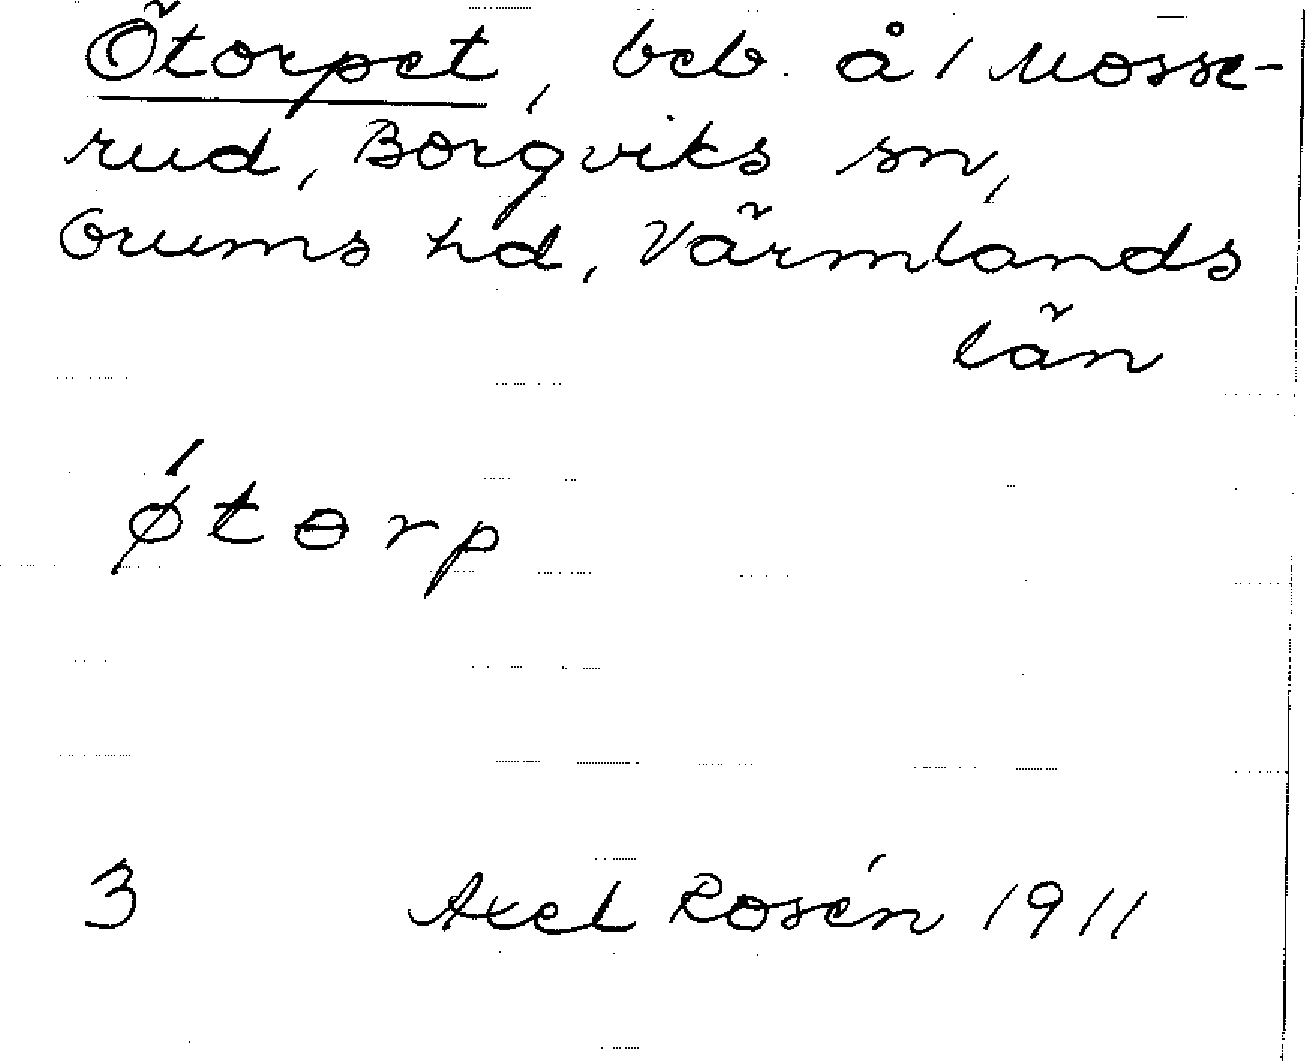 Ötorpet, beb. å 1 Mosse-
rud, Borgviks sn,
Grums hd, Värmlands
län
ǿtɵrp
3 Axel Rosén 1911